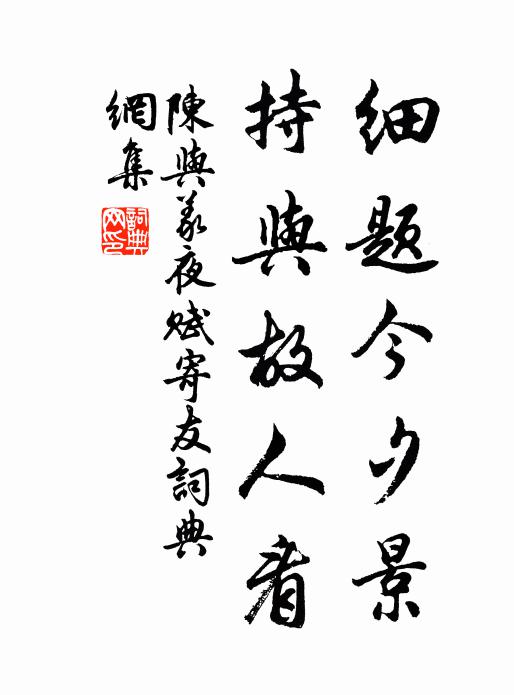 细题今夕景
持與故人看
陳與義夜赋寄友詞典
網集
詞典
网印